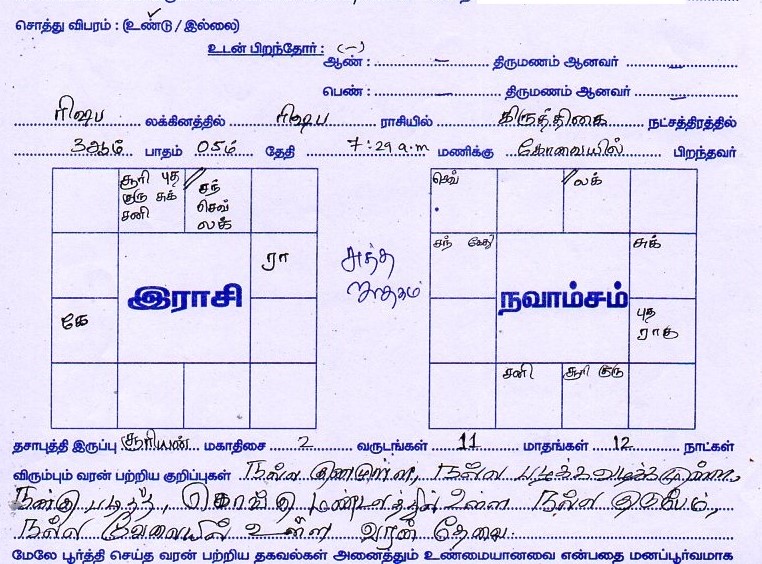 சொத்து விபரம் : (உண்டு / இல்லை)
உடன் பிறந்தோர் : (-)
ஆண் : - திருமணம் ஆனவர் -
பெண் : - திருமணம் ஆனவர் -
ரிஷப லக்கினத்தில் ரிஷப ராசியில் கிருத்திகை நட்சத்திரத்தில்
3ஆம் பாதம் 05ம் தேதி 7:29 a.m மணிக்கு கோவையில் பிறந்தவர்
சூரி புத
குரு சுக்
சனி
சந்
செவ்
லக்
ரா
இராசி
கே
சுத்த
செவ்
லக்
சந் கேது
சுக்
நவாம்சம்
புத
ராகு
சனி
சூரி குரு
தசாபுத்தி இருப்பு சூரியன் மகாதிசை 2 வருடங்கள் 11 மாதங்கள் 12 நாட்கள்
விரும்பும் வரன் பற்றிய குறிப்புகள் நல்ல குணமுள்ள, நல்ல பழக்கவழக்கமுள்ள,
நன்கு படித்த, கொங்கு மண்டலத்தில் உள்ள நல்ல குடும்பம்,
நல்ல வேலையில் உள்ள வரன் தேவை.
மேலே பூர்த்தி செய்த வரன் பற்றிய தகவல்கள் அனைத்தும் உண்மையானவை என்பதை மனப்பூர்வமாக